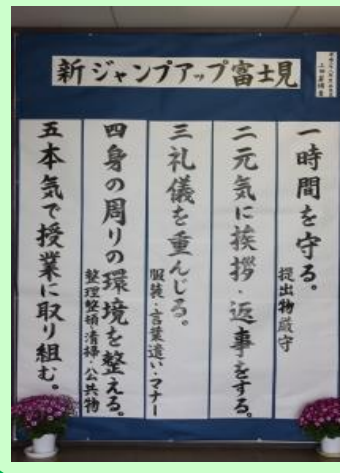 新ジャンプアップ富士見
一 時間を守る。
提出物厳守
二 元気に挨拶・返事をする。
三 礼儀を重んじる。
服装・言葉遣い・マナー
四 身の周りの環境を整える。
整理整頓・清掃・公共物
五 本気で授業に取り組む。